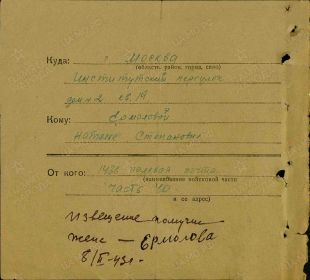 Куда: г. Москва
(область, район, город, село)
Институтский переулок
дом № 2 кв. 19
Кому: Ермоловой
Наталье Степановне
От кого: 1436 полевая почта
(наименование войсковой части
часть 40
и ее адрес)
Извещение получил
жена — Ермолова
8/II-43г.